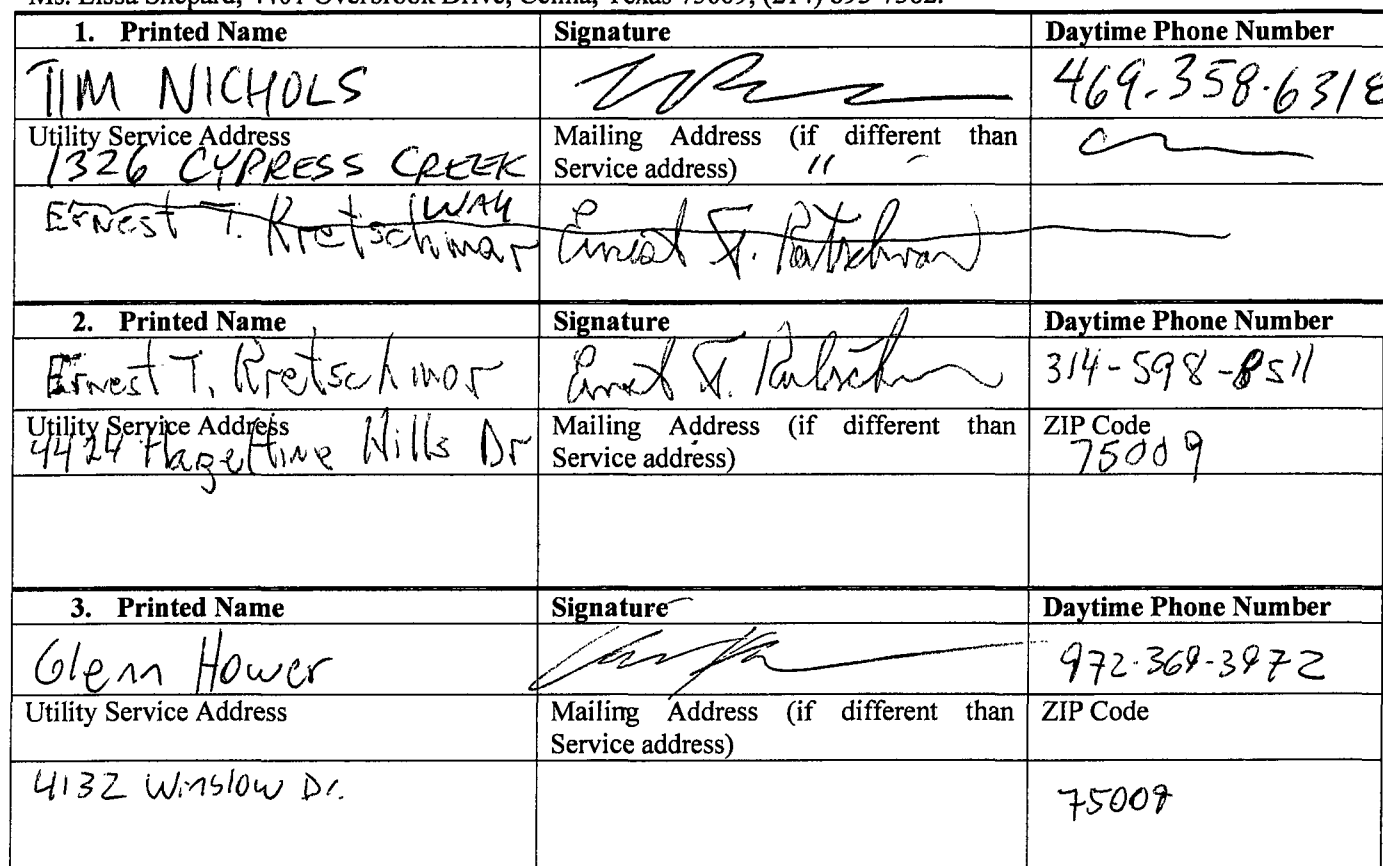 Ms. Lissa Shepard, 4401 Overbrook Drive, Celina, Texas 75009, (214) 893-7382.
1. Printed Name Signature Daytime Phone Number
TIM NICHOLS 469-358-6318
Utility Service Address Mailing Address (if different than
1326 CYPRESS CREEK Service address) "
WAY
Ernest T. Kretschmar Ernest T. Kretschmar
2. Printed Name Signature Daytime Phone Number
Ernest T. Kretschmar Ernest T. 314-598-8511
Utility Service Address Mailing Address (if different than ZIP Code
4424 Hills Dr Service address) 75009
3. Printed Name Signature Daytime Phone Number
Glenn Hower 972-369-3972
Utility Service Address Mailing Address (if different than ZIP Code
Service address)
4132 Winslow Dr. 75009